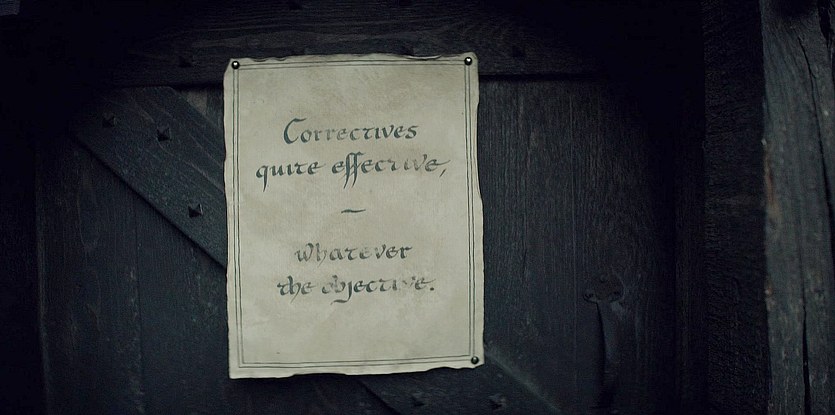 Correctives
quite effective,
—
whatever
the objective.